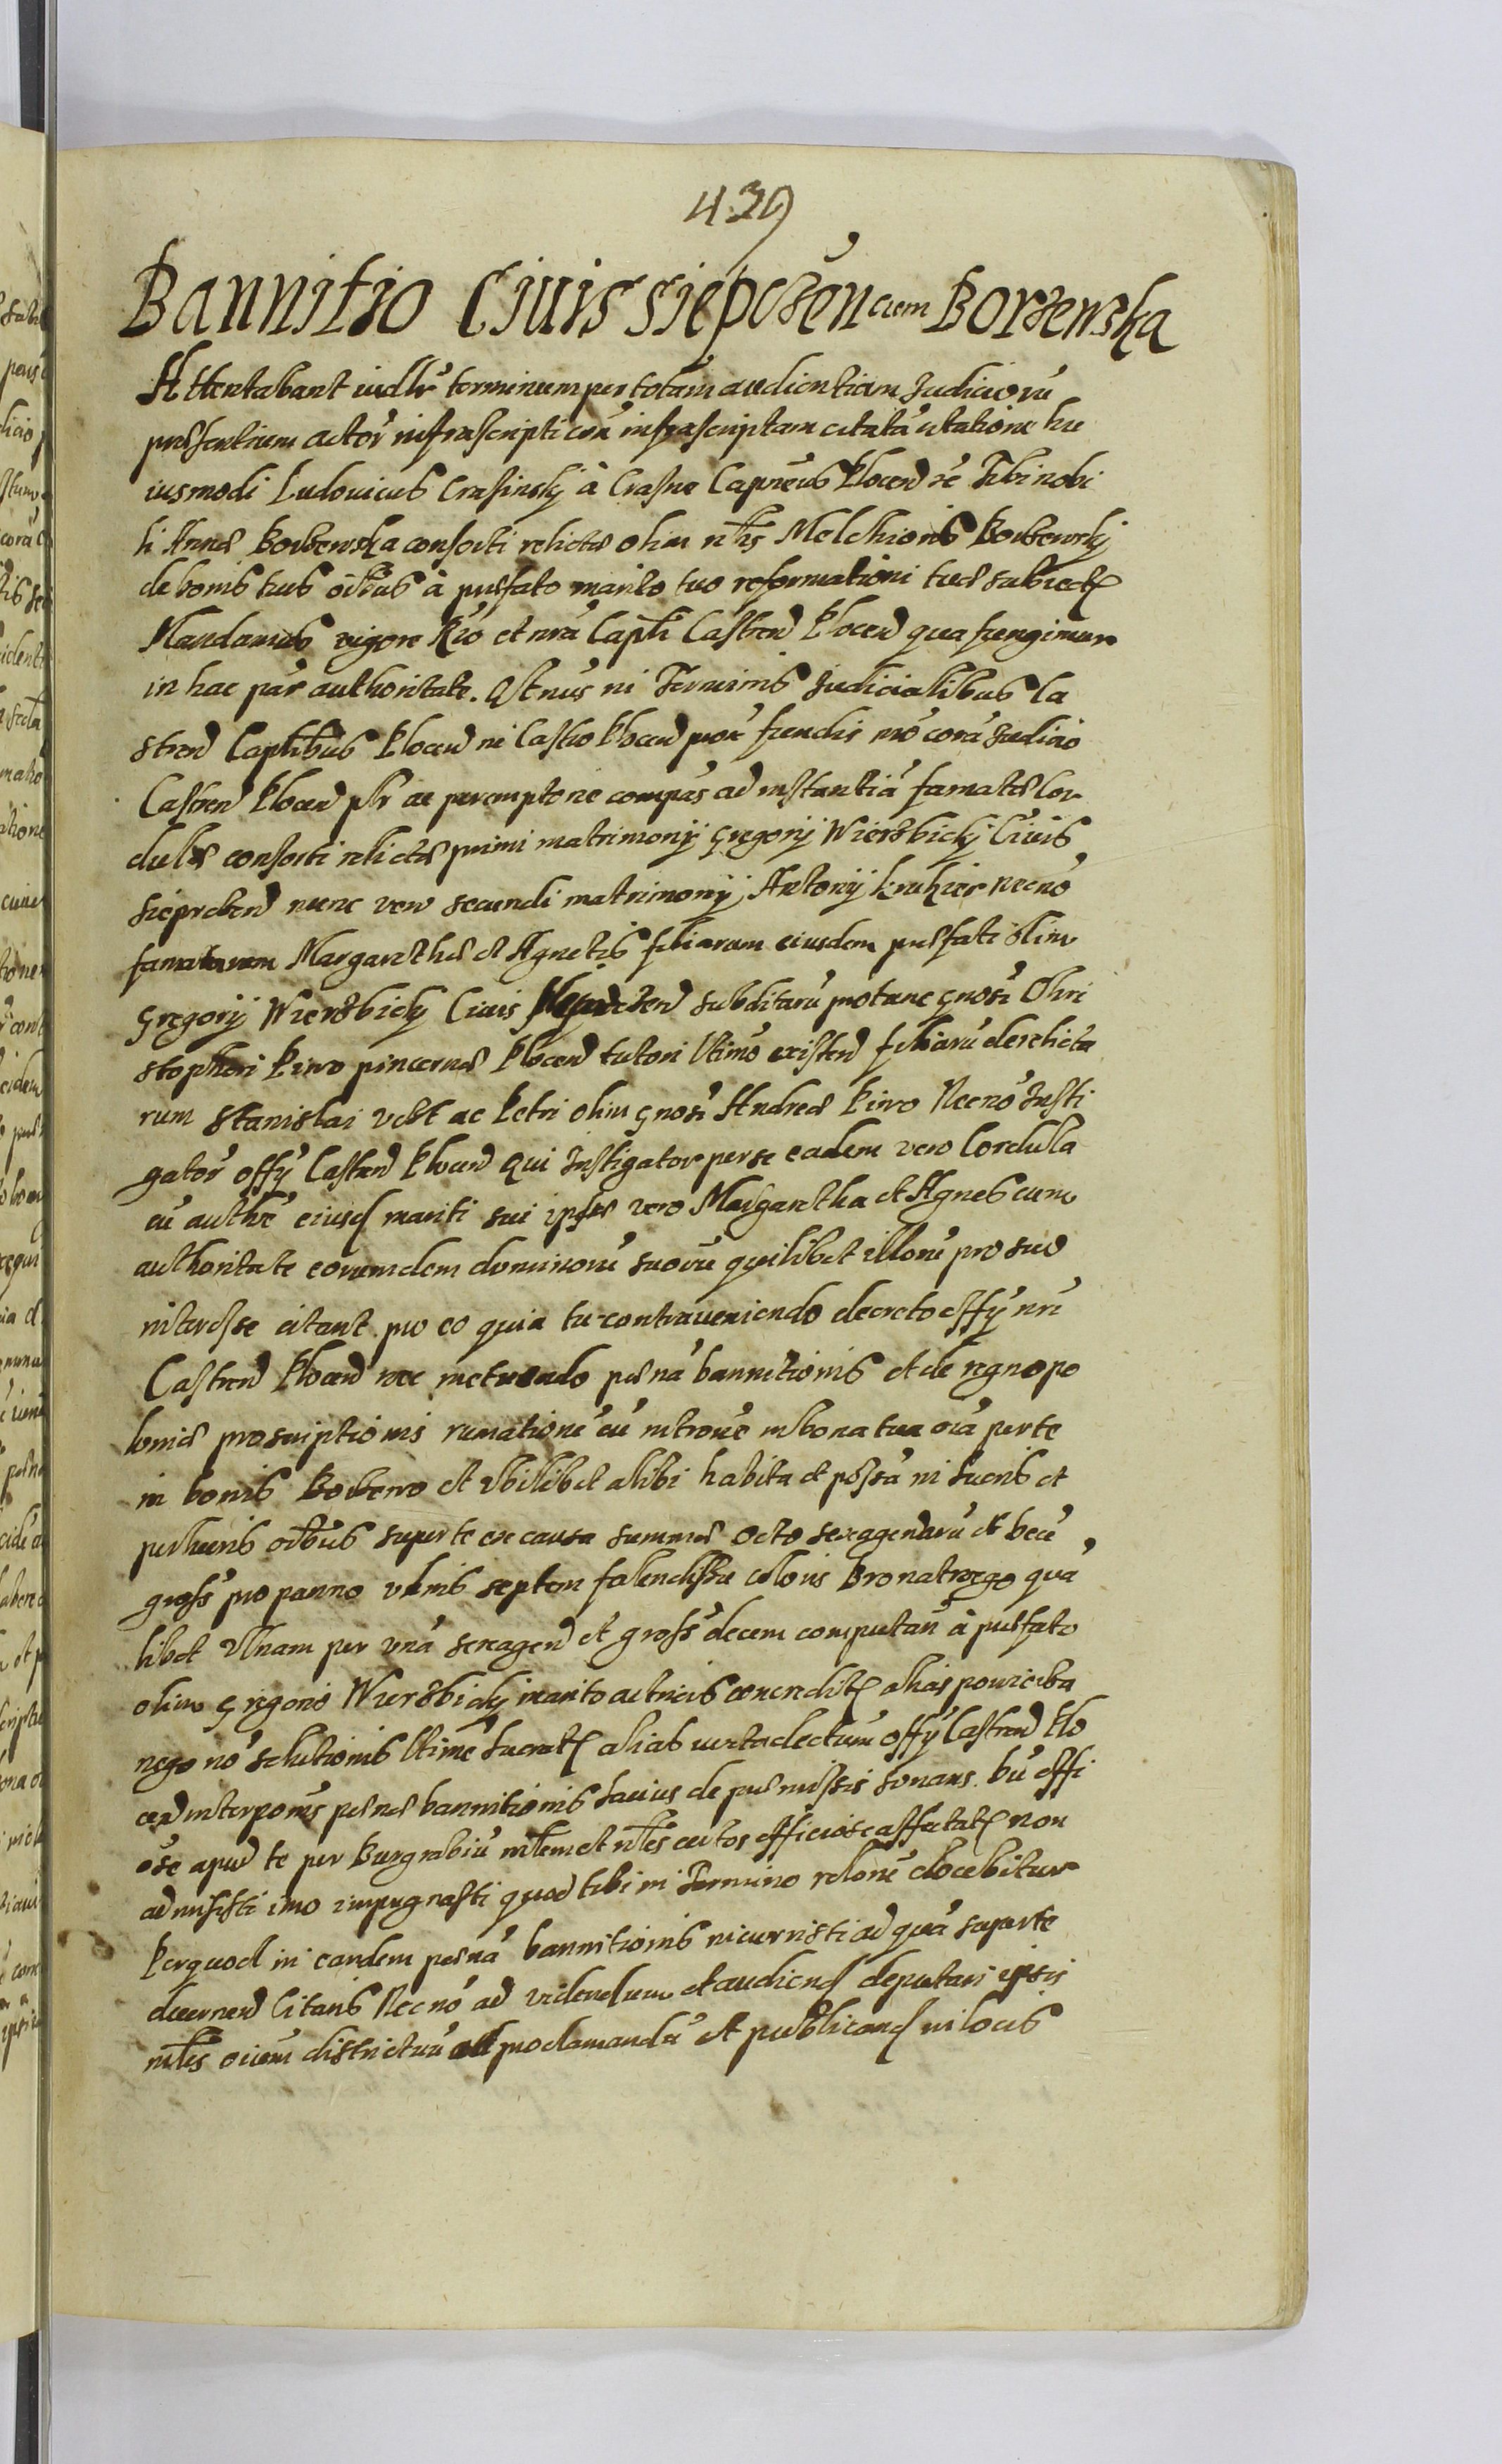 439
Bannitio Ciuis Siepczen̄ cum Borzewska
Attentabant iudlr̄ terminum per totam audientiam Judiciorū
præsentium actor̄ infrascripti cōn infrascriptam citatā citatione hu
iusmodi Ludouicus Crasinsky à Crasne Capneūs Plocen̄ rē Tibi nobi
li Annæ Borzewska consorti relictæ olim nłis Melchioris Borzewsky
de bonis tuis oībus à præfato marito tuo reformationi tuæ subiectꝭ
Mandamus vigore Rīo et nrā Capłi Castren̄ Plocen̄ qua fungimur
in hac par̄ authoritate. Qtnus in Terminis Judicialibus Ca
stren̄ Capłibus Plocen̄ in Castro Plocen̄ prox̄ fiendis īno corā Judicio
Castren̄ Plocen̄ plr̄ ac peremptorie compās ad instantiā famatæ Cor
dulæ consorti relictæ primi matrimonij Gregorij Wierzbicky Ciuis
Sieprcben̄ nunc vero secundi matrimonij Antonij Kruhier necnō
famatarum Margarethæ et Agnetis filiarum eiusdem præfati olim
Gregorij Wierzbicky Ciuis subditarū pro tunc Gnosi Chri
stopheri Kirro pincernæ Plocen̄ tutori ltimo existen̄ filiarū derelicta
rum Stanislai vczt ac Petri olim Gnosi Andreæ Kirro Necnō Insti
gator̄ offÿ Castren̄ Plocen̄ Qui Instigator per se eadem vero Cordula
cū authre eiusd mariti sui ipsæ vero Margaretha et Agnes cum
authoritate eorumdem dominorū suorū quilibet illorū pro suo
interesse citant. pro eo quia tu contraueniendo decreto offÿ nrī
Castren̄ Plocen̄ nec metuendo pænā bannitionis et de regno po
loniæ proscriptionis rumationē cū introme in bona tua oiā per te
in bonis Borzewo et vbilibet alibi habita et possā in lucris et
perlucris oībus super te ex causa summæ octo sexagenarū et decē
gross̄ pro panno vlnis septem falendissu coloris Bronatnego quā
libet Vlnam per vnā sexagen̄ et gross̄ decem computan̄ à præfato
olim Gregorio Wierzbicky marito actricis concreditꝭ alias powierzba
nego nō solutionis ltime lucratꝭ alias iuxta dectum offÿ Castren̄ Plo
cen̄ interpōnis pænæ bannitionis latius de præmissis sonans. bū offi
ose apud te per Burgrabiū młem et nłes certos officiose affectatꝭ non
admisisti imo impugnasti quod tibi in Termino rełone docebitur
Per quod in eandem pænā bannitionis incurristi ad quā super te
decernen̄ Citaris Necnō ad videndum et audiend deputari ipsis
młes oium districtuū ad proclamandū et publicand in locis